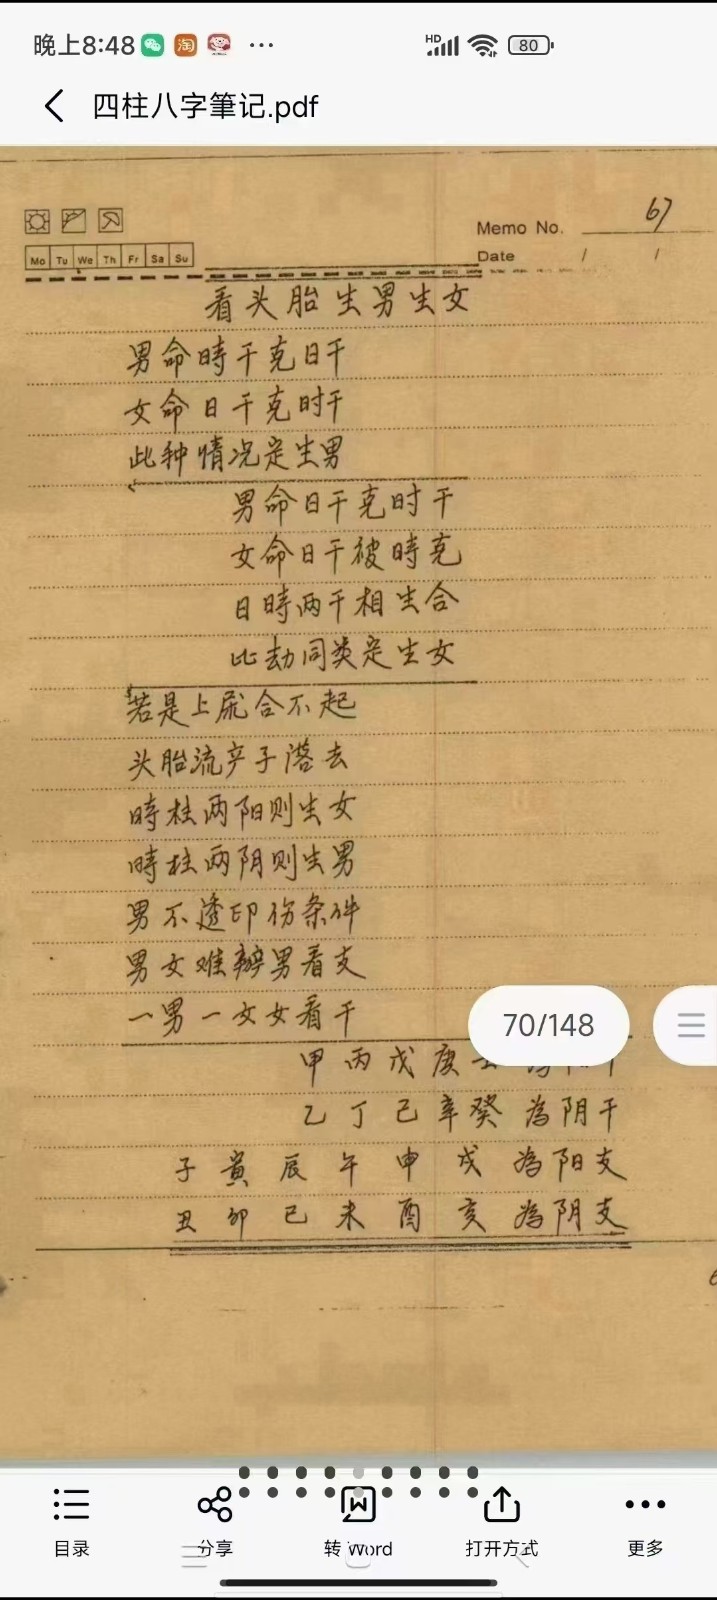 晚上8:48 淘 ··· HD 80
四柱八字筆记.pdf
Memo No. 67
Mo Tu We Th Fr Sa Su
Date / /
看头胎生男生女
男命時干克日干
女命日干克时干
此种情况定生男
男命日干克时干
女命日干被時克
日時两干相生合
比劫同类定生女
若是上尅合不起
头胎流产子落去
時柱两阳则生女
時柱两阴则生男
男不透印伤条件
男女难辨男看支
一男一女女看干
70/148
甲丙戊庚
乙丁己辛癸為阴干
子寅辰午申戌為阳支
丑卯巳未酉亥為阴支
目录 分享 转Word 打开方式 更多